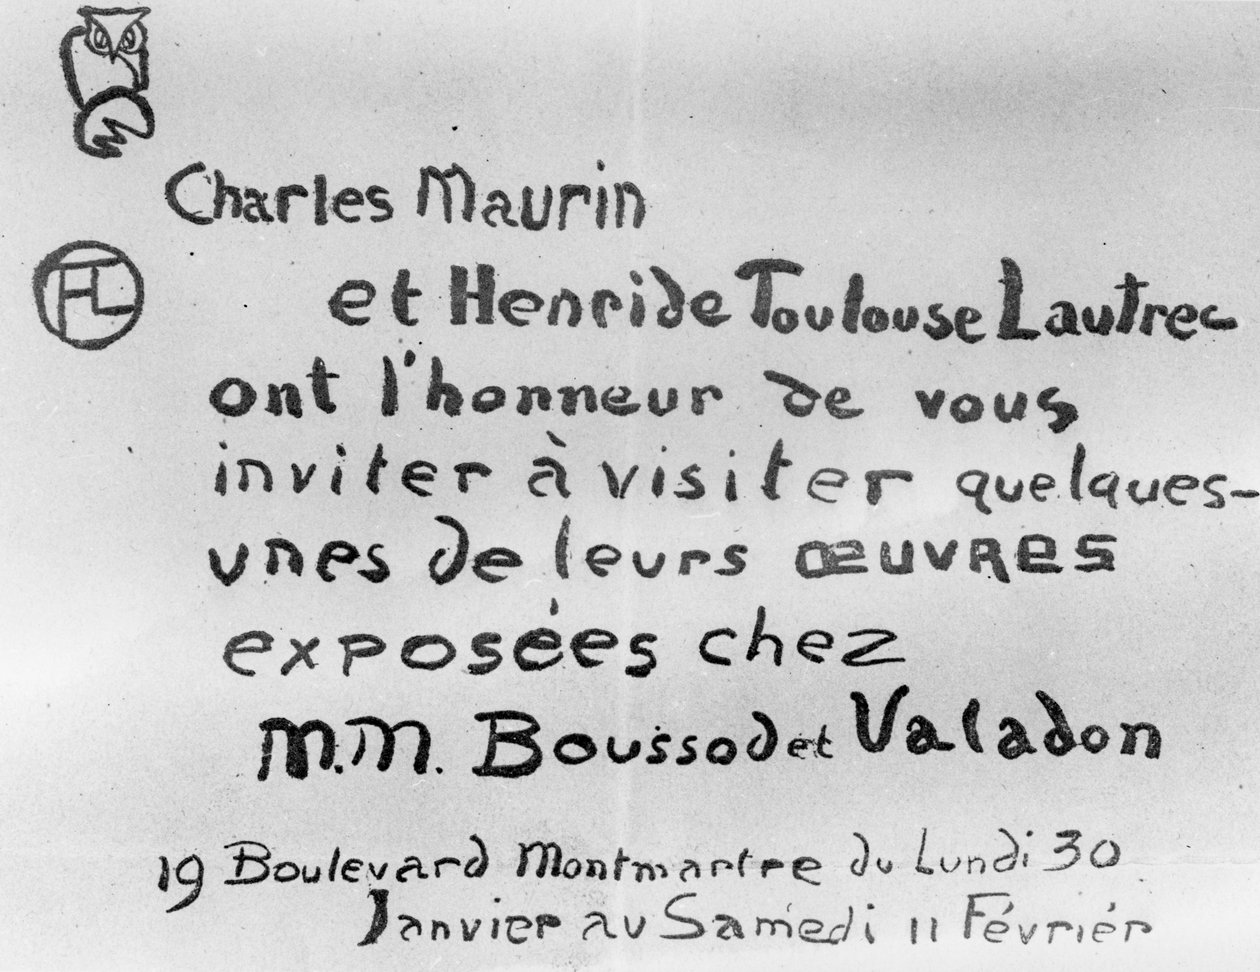 Charles Maurin
HTL
et Henri de Toulouse Lautrec
ont l'honneur de vous
inviter à visiter quelques-
unes de leurs œuvres
exposées chez
M.M. Boussod et Valadon
19 Boulevard Montmartre du Lundi 30
Janvier au Samedi 11 Févriér